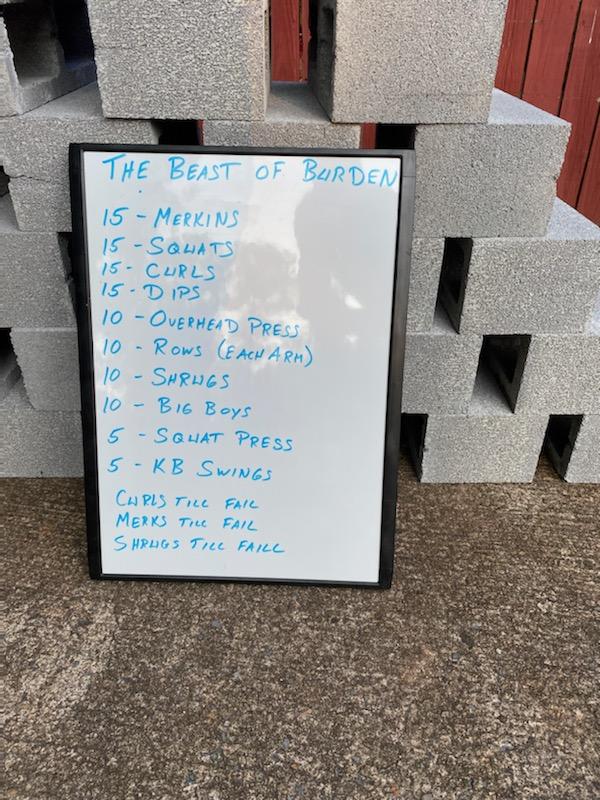 THE BEAST OF BURDEN
15 - MERKINS
15 - SQUATS
15 - CURLS
15 - DIPS
10 - OVERHEAD PRESS
10 - ROWS (EACH ARM)
10 - SHRUGS
10 - BIG BOYS
5 - SQUAT PRESS
5 - KB SWINGS
CURLS TILL FAIL
MERKS TILL FAIL
SHRUGS TILL FAILL